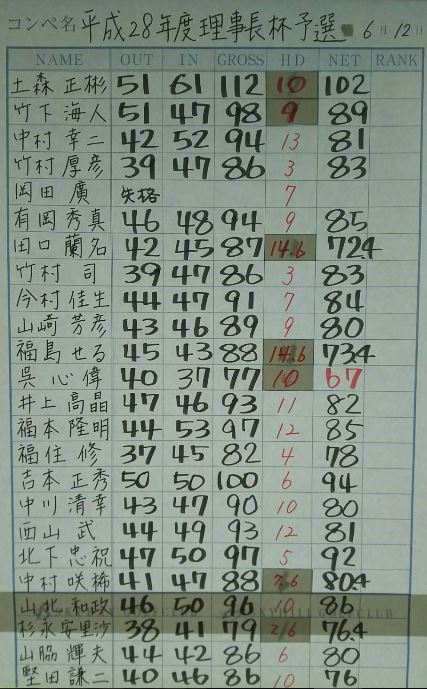 コンペ名 平成28年度理事長杯予選 6月12日
NAME OUT IN GROSS HD NET RANK
土森 正彬 51 61 112 10 102
竹下 海人 51 47 98 9 89
中村 幸二 42 52 94 13 81
竹村 厚彦 39 47 86 3 83
岡田 廣 失格 7
有岡 秀真 46 48 94 9 85
田口 蘭名 42 45 87 14.6 72.4
竹村 司 39 47 86 3 83
今村 佳生 44 47 91 7 84
山崎 芳彦 43 46 89 9 80
福島 せる 45 43 88 14.6 73.4
呉 心偉 40 37 77 10 67
井上 高晶 47 46 93 11 82
福本 隆明 44 53 97 12 85
福住 修 37 45 82 4 78
吉本 正秀 50 50 100 6 94
中川 清幸 43 47 90 10 80
西山 武 44 49 93 12 81
北下 忠祝 47 50 97 5 92
中村 咲稀 41 47 88 7.6 80.4
山北 和政 46 50 96 10 86
杉永 安里沙 38 41 79 2.6 76.4
山脇 輝夫 44 42 86 6 80
堅田 謙二 40 46 86 10 76